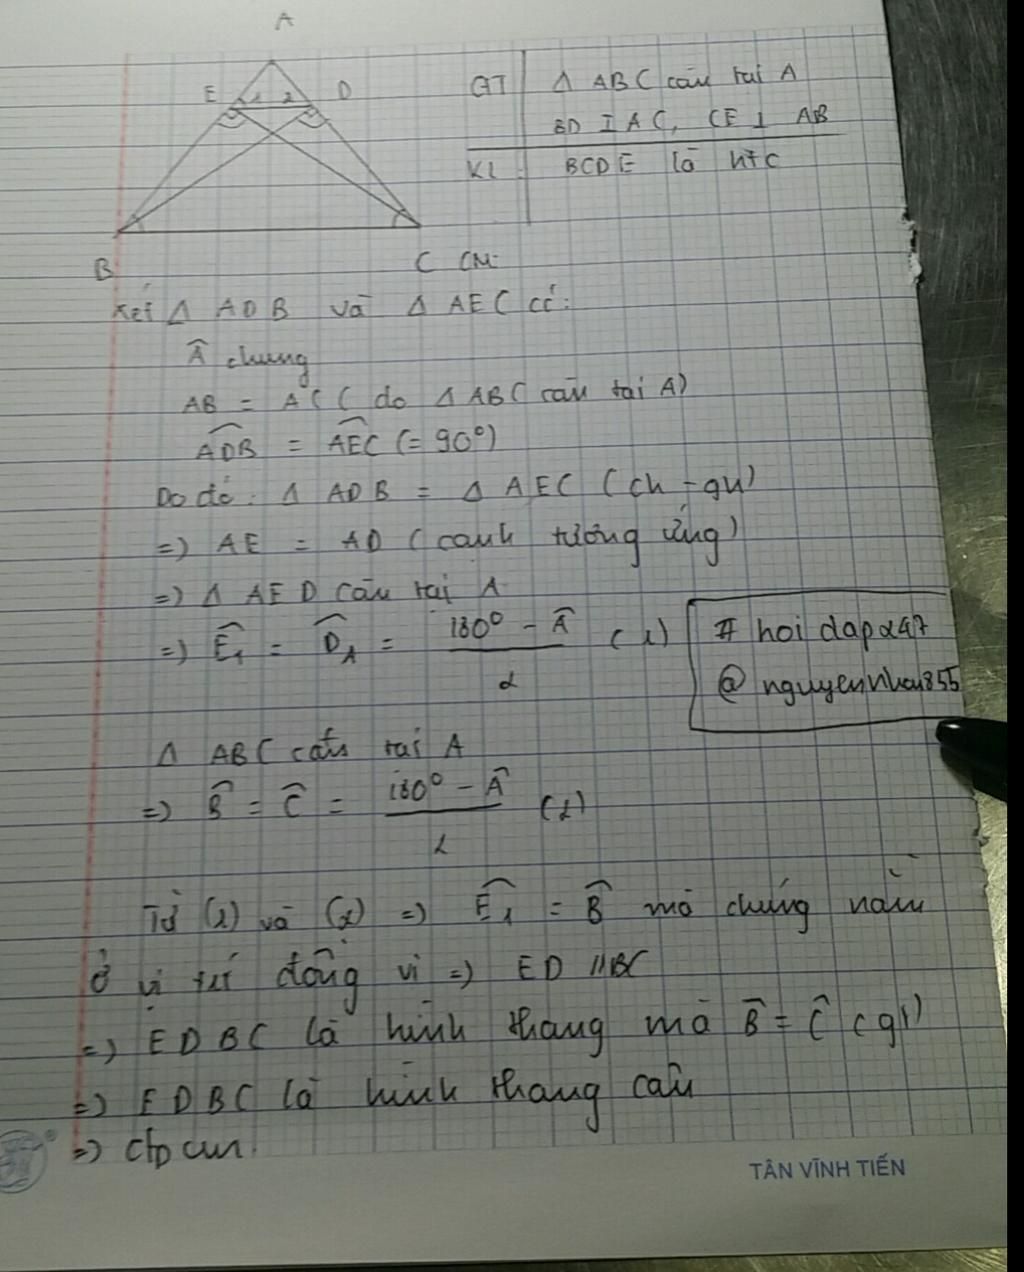 A
E 1 2 D
B
C
GT Δ ABC cân tại A
BD ⊥ AC, CE ⊥ AB
KL: BCDE là htc
CM:
Xét Δ ADB và Δ AEC có:
Â chung
AB = AC (do Δ ABC cân tại A)
ADB = AEC (= 90°)
Do đó: Δ ADB = Δ AEC (ch - gn)
=> AE = AD (cạnh tương ứng)
=> Δ AED cân tại A
=> Ê1 = D1 = (180° - Â) / 2 (1)
# hoidap247
@ nguyennhan855
Δ ABC cân tại A
=> B = C = (180° - Â) / 2 (2)
Từ (1) và (2) => Ê1 = B mà chúng nằm
ở vị trí đồng vị => ED // BC
=> EDBC là hình thang mà B = C (gt)
=> EDBC là hình thang cân
=> đpcm.
TÂN VĨNH TIẾN